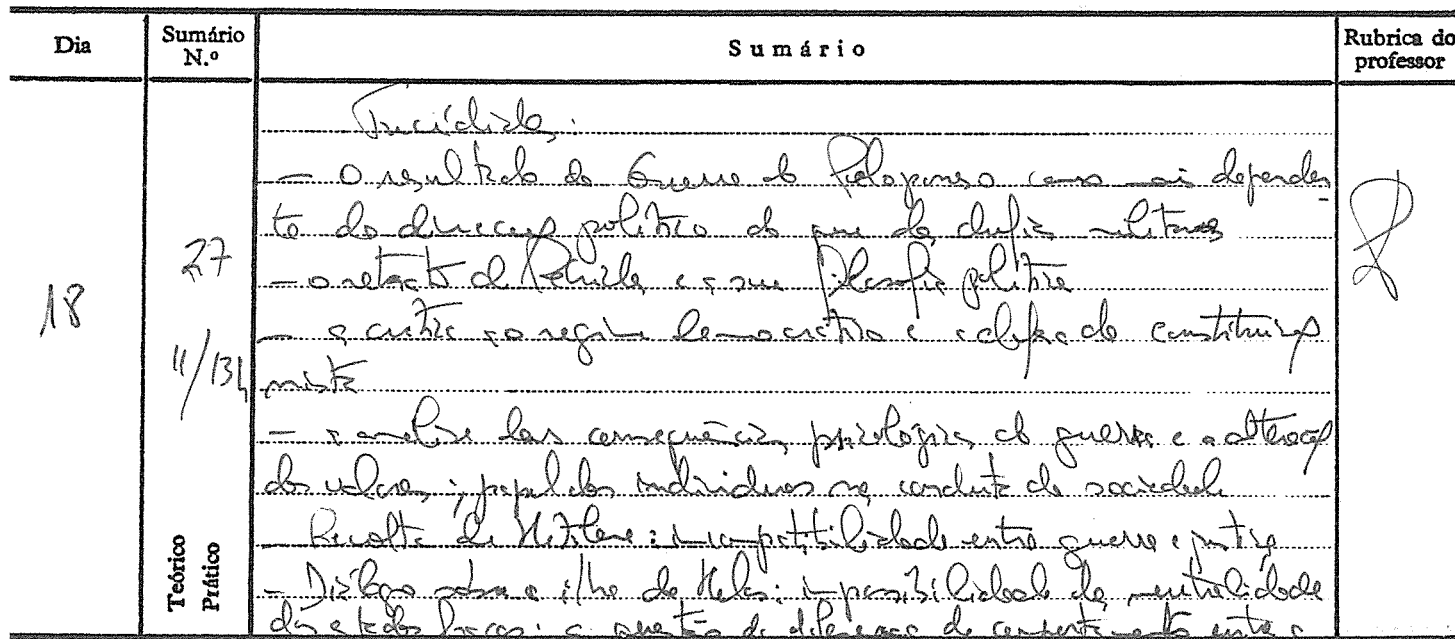 Dia
Sumário N.º
Sumário
Rubrica do professor
18
27
11/134
Teórico
Prático
Tucídides:
- O resultado da Guerra do Peloponeso como mais dependen-
te da direcção política do que da chefia militares
- o retrato de Péricles e a sua filosofia política
- a crítica ao regime democrático e a defesa da constituição
mista
- a análise das consequências psicológicas da guerra e a alteração
dos valores; papel dos indivíduos na conduta da sociedade
- Revolta de Mitilene: incompatibilidade entre guerra e justiça
- Diálogo sobre a ilha de Melos: impossibilidade da neutralidade
dos estados fracos: a questão da diferença de comportamento entre o